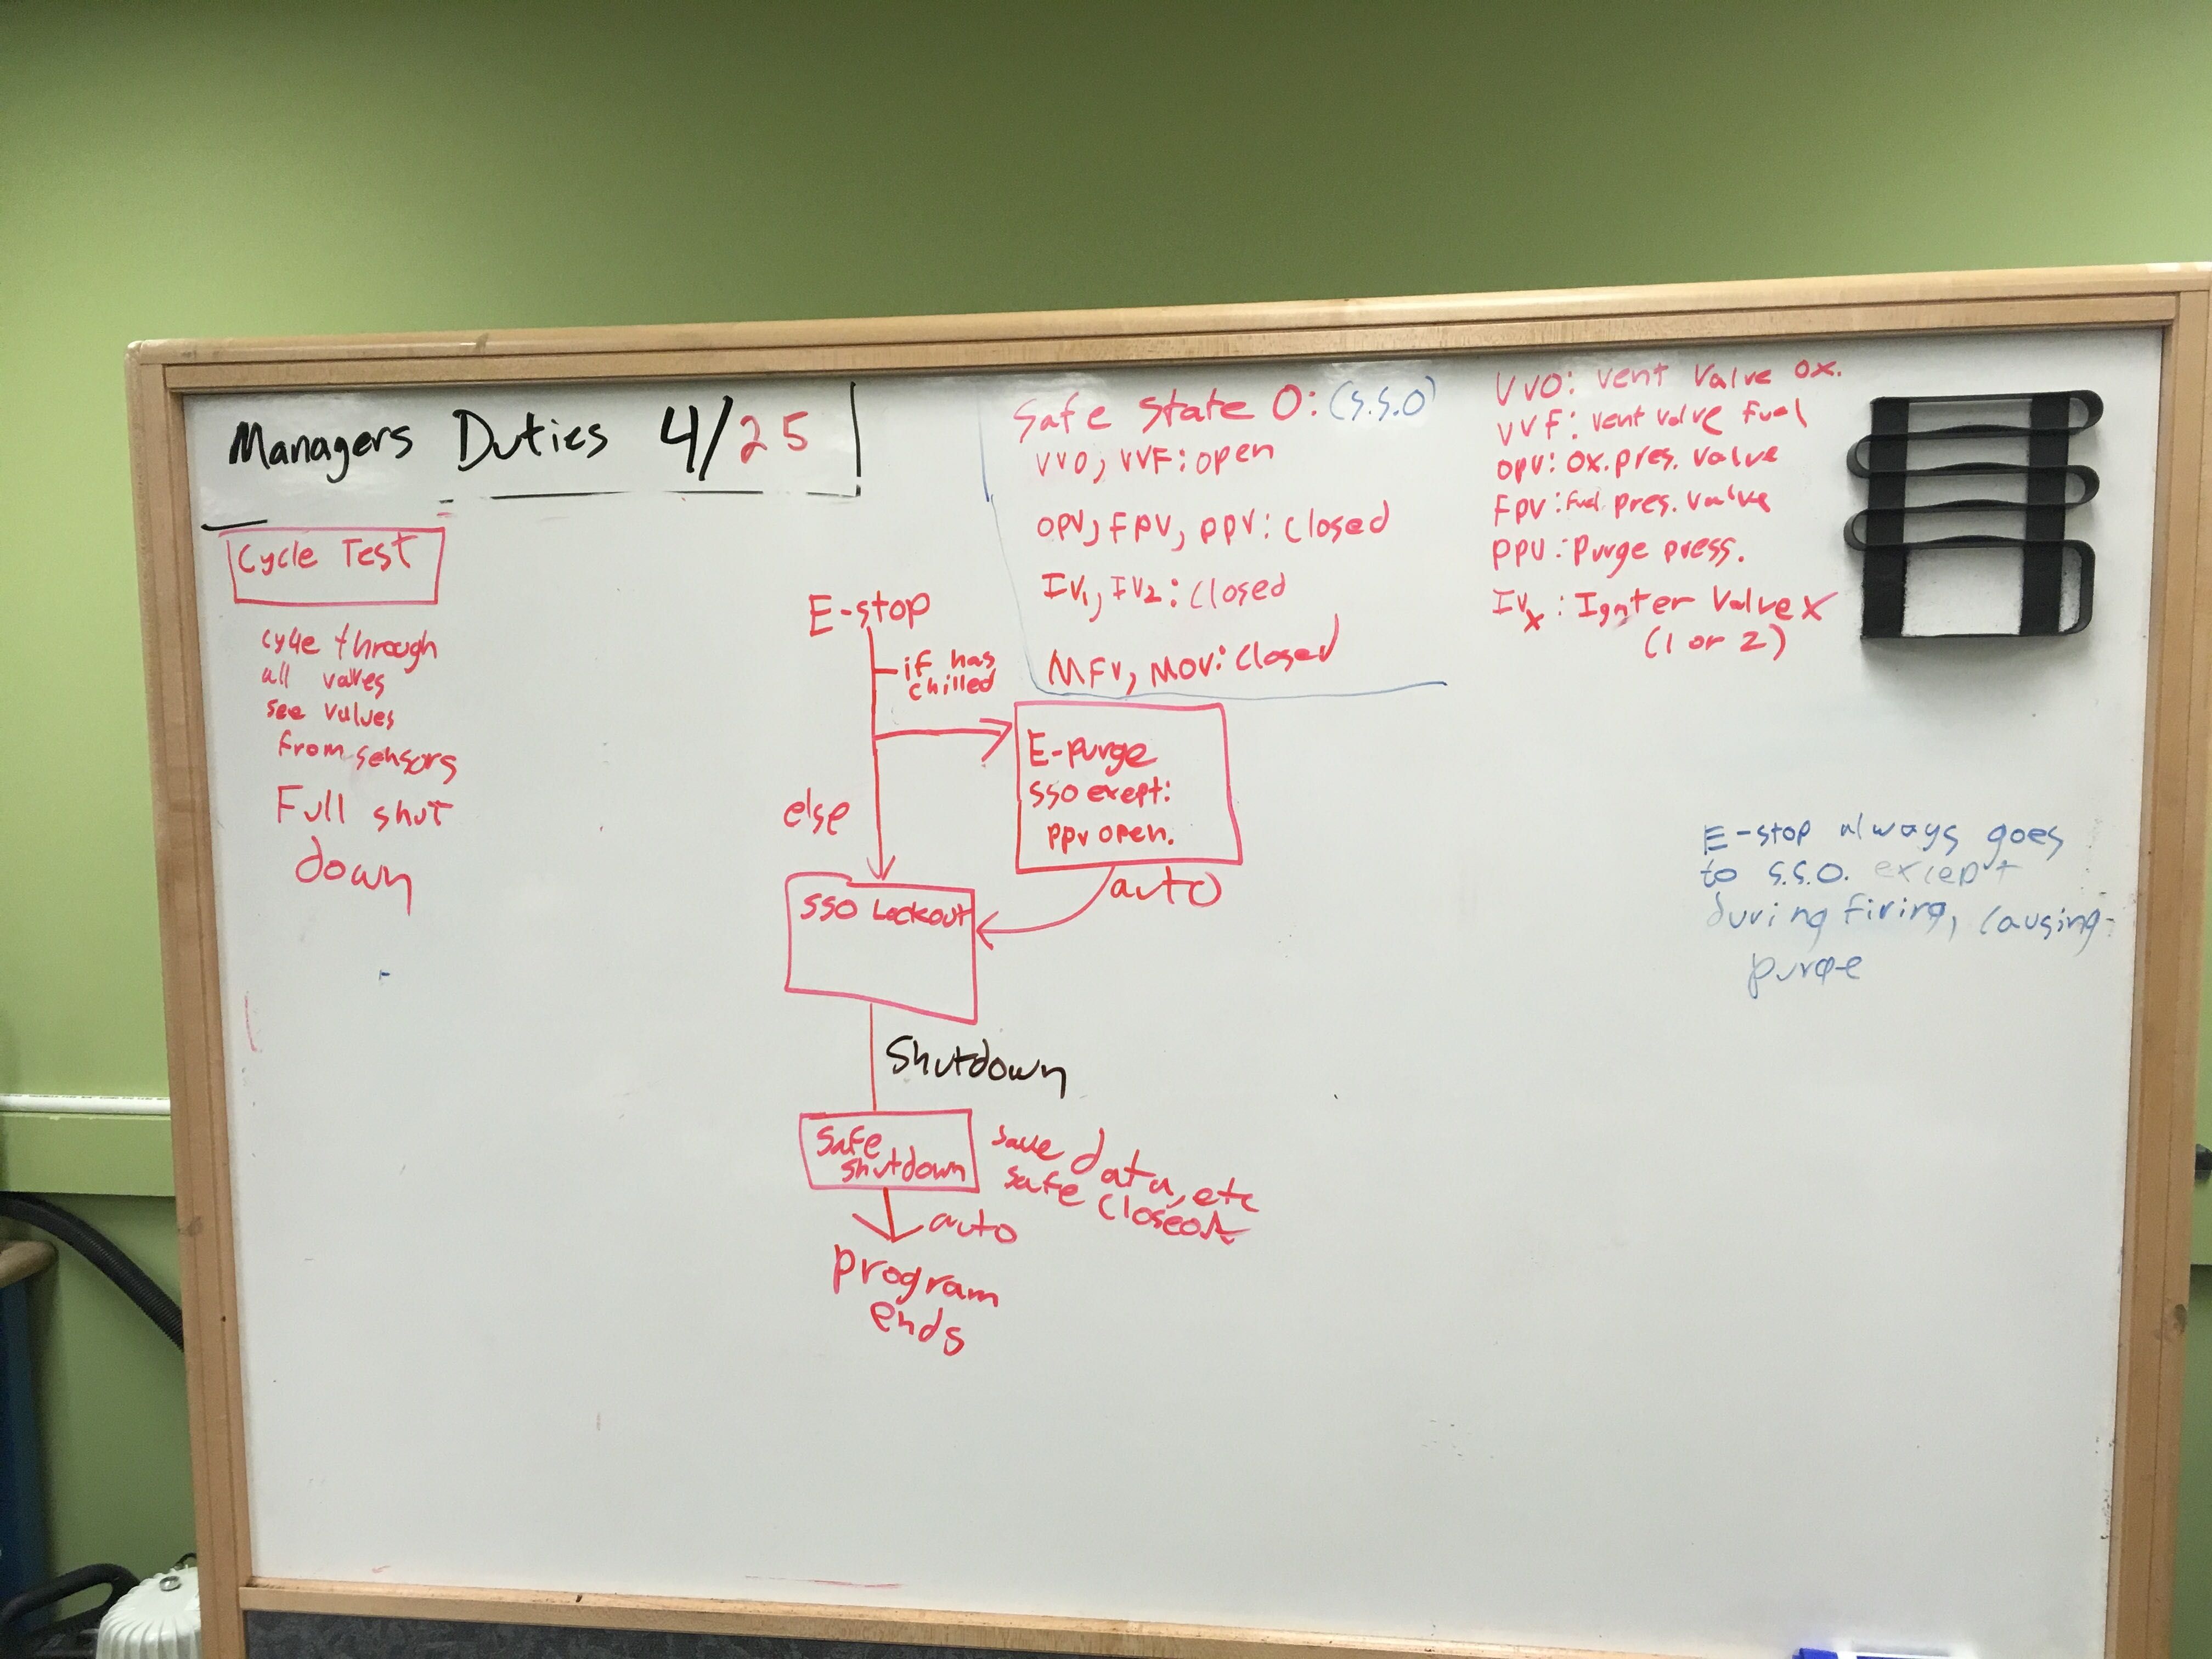 Managers Duties 4/25
Cycle Test
cycle through
all valves
see values
from sensors
Full shut
down
Safe State 0: (S.S.0)
VVO, VVF: open
OPV, FPV, PPV: closed
IV1, IV2: closed
MFV, MOV: closed
VVO: Vent Valve Ox.
VVF: Vent Valve Fuel
OPV: Ox. pres. Valve
FPV: Fuel pres. Valve
PPV: Purge press.
IVx: Ignter Valve X
(1 or 2)
E-stop
if has
chilled
E-purge
SS0 exept:
ppv open.
else
auto
SS0 Lockout
Shutdown
Safe
Shutdown
save data, etc
safe closeout
auto
program
ends
E-stop always goes
to S.S.0. except
during firing, causing
purge